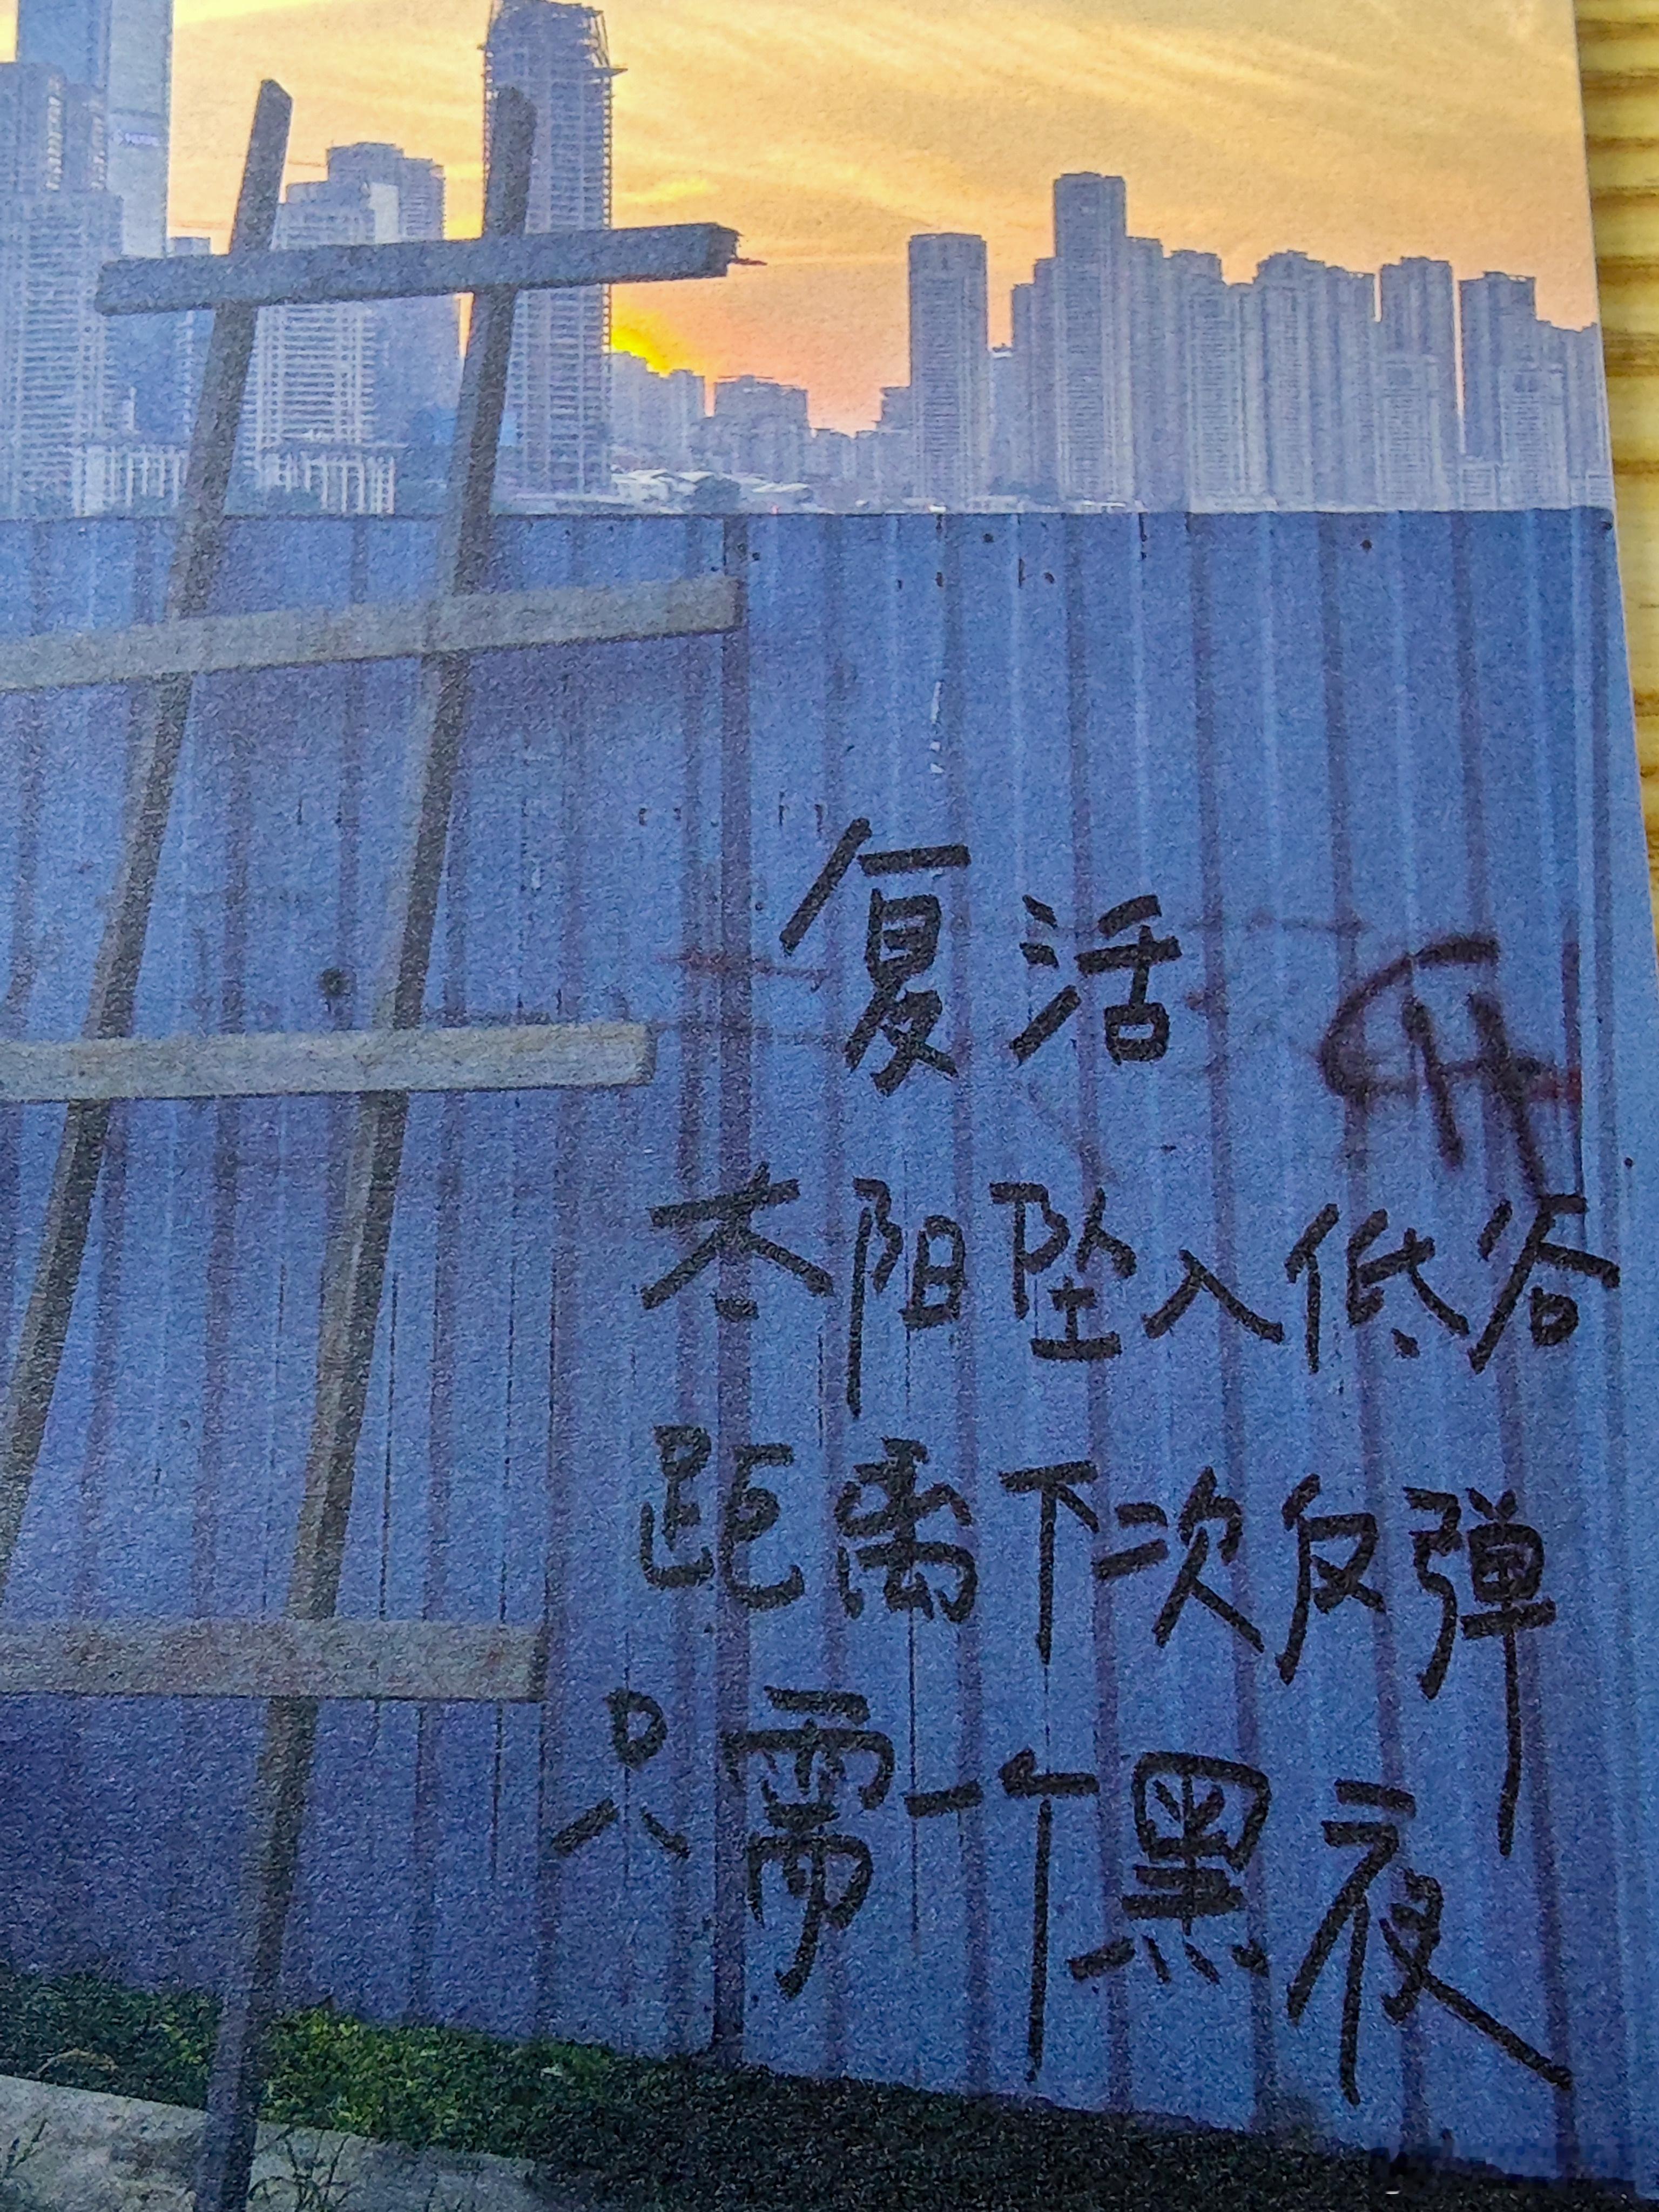 复活
太阳坠入低谷
距离下次反弹
只需一个黑夜